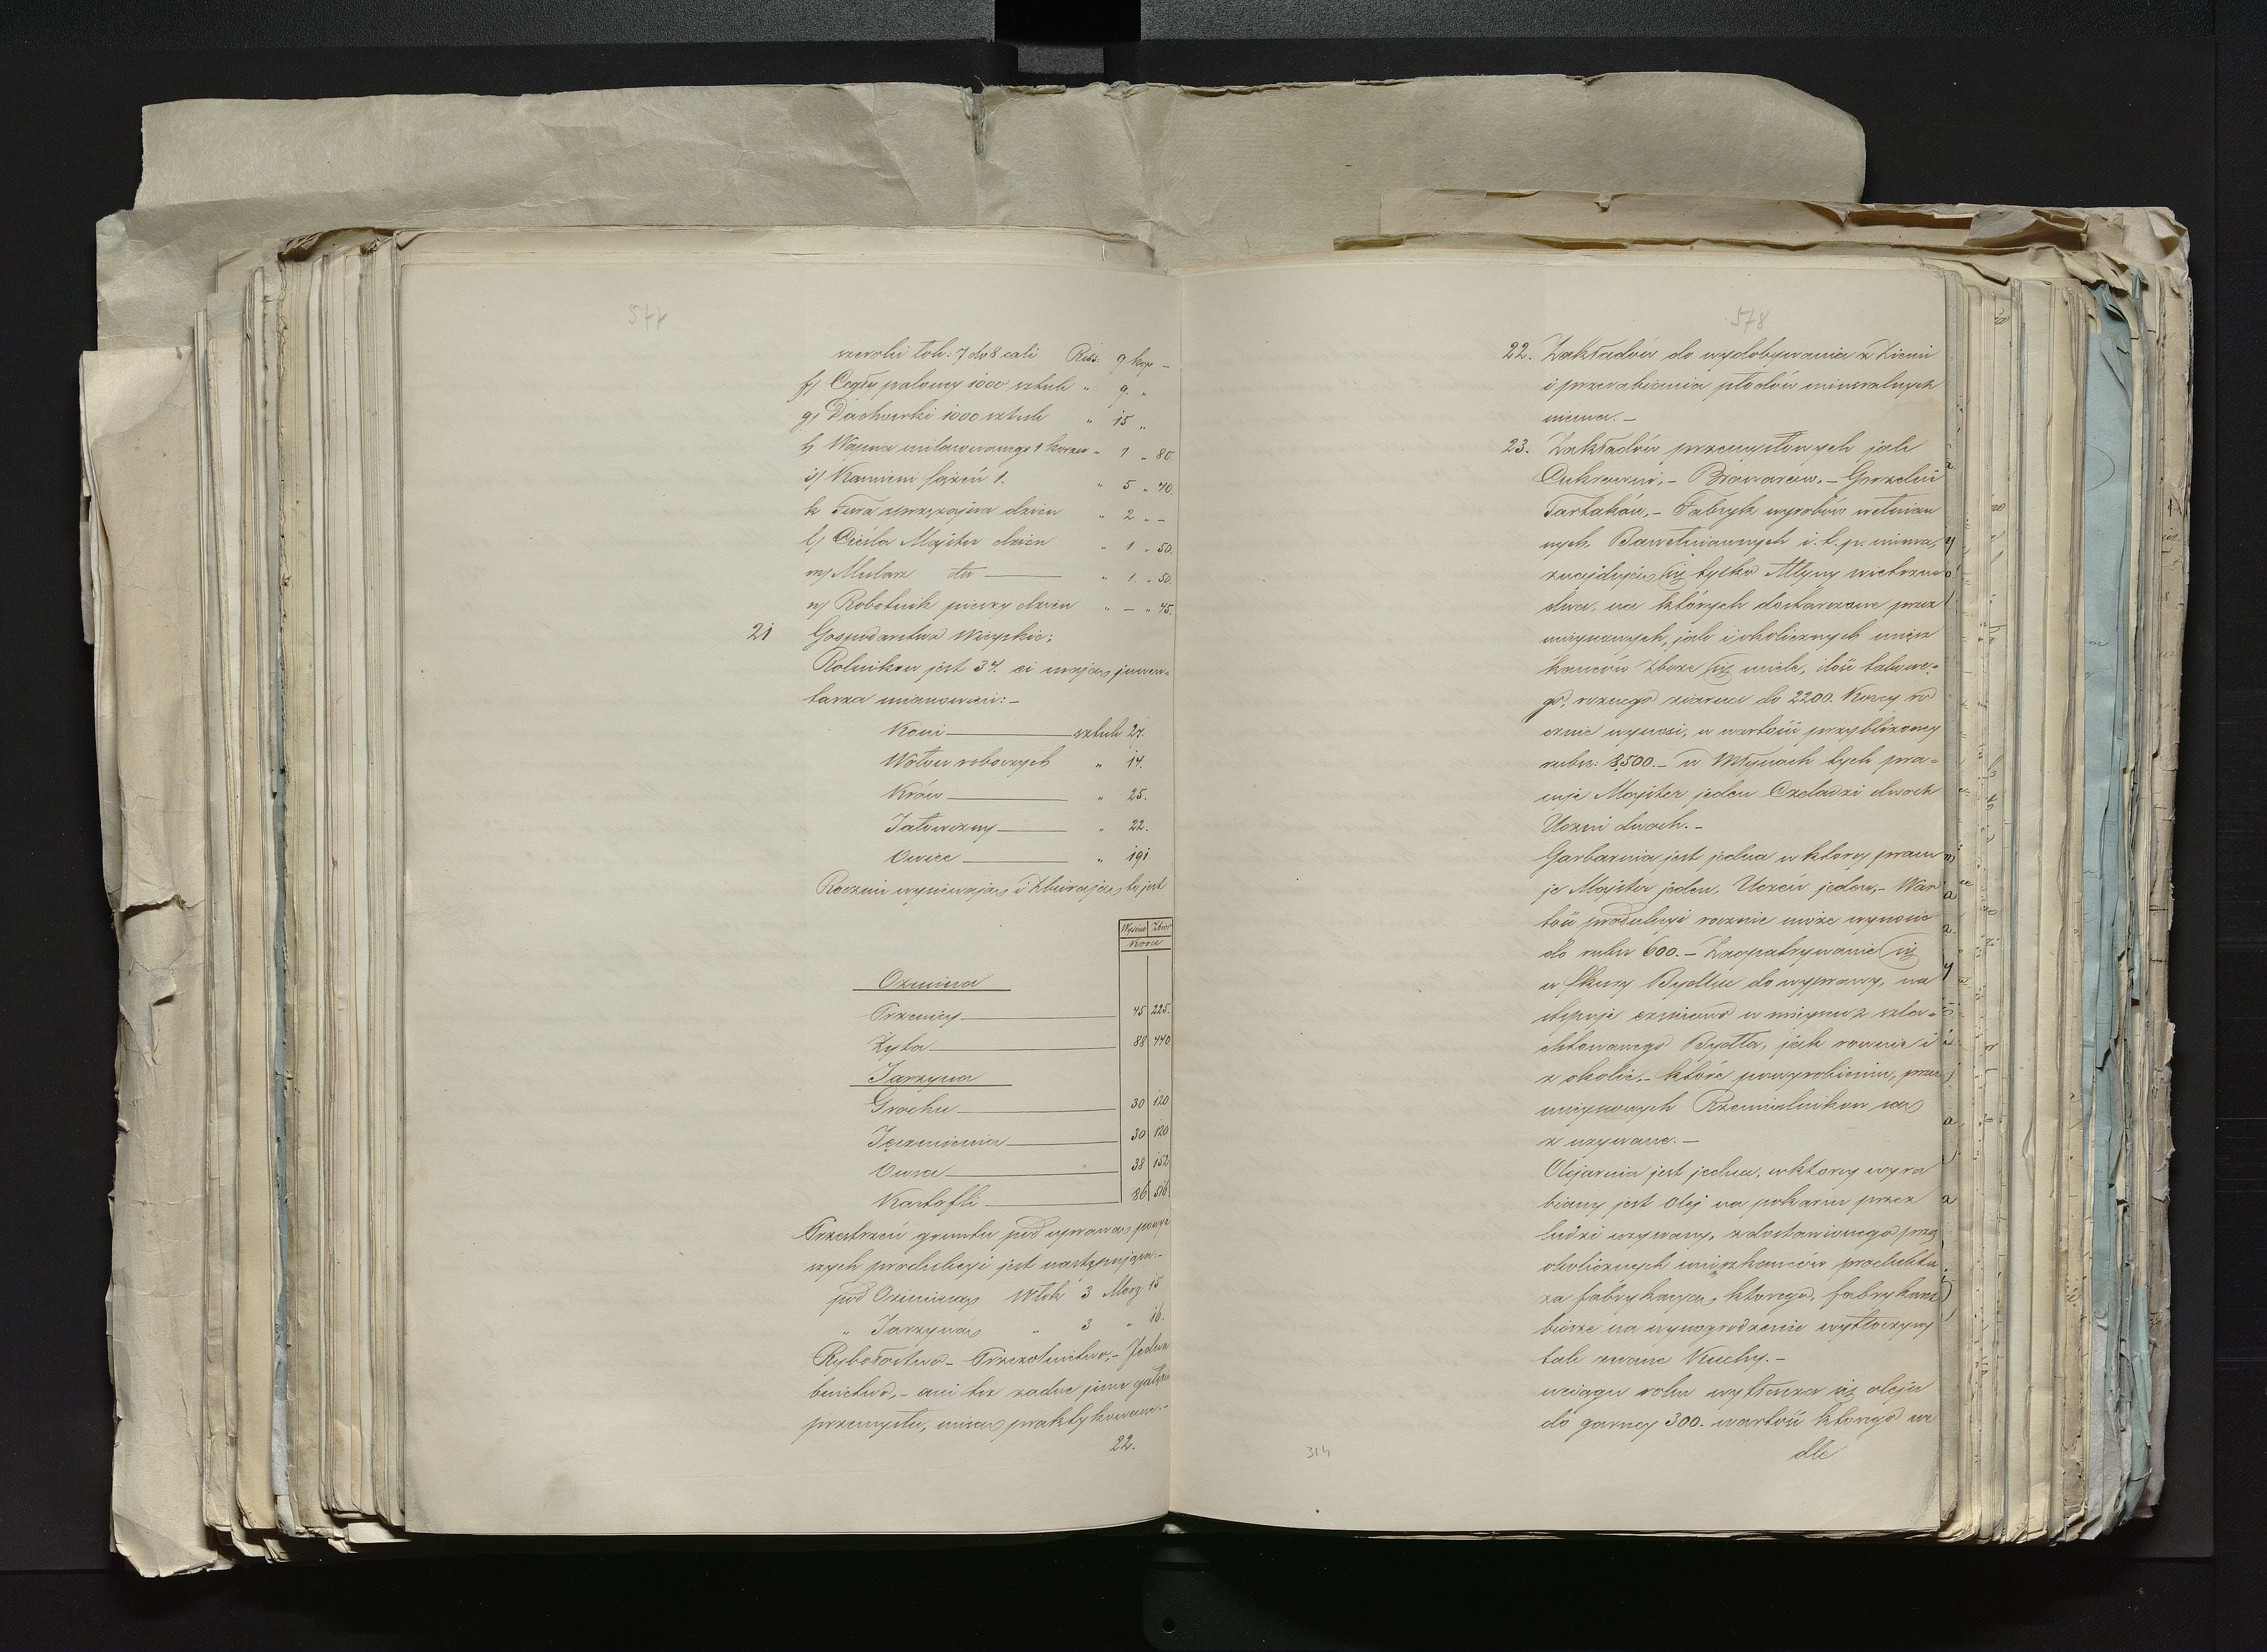 577
szeroki łok: 7 do 8 cali Rbs. 9 kop –
f) Cegły palonej 1000 sztuk " 9. "
g) Dachówki 1000 sztuk " 15 "
h) Wapna milasowanego 1 korzec " 1 " 80.
i) Kamieni sążeń 1. " 5 " 40.
k Fura sprzężajna dzień " 2 " –
l) Cieśla Majster dzień " 1 " 50.
m) Mularz dto — " 1. " 50.
n) Robotnik pieszy dzień " – " 45.
21 Gospodarstwo Wiejskie:
Rolników jest 34. ci mają inwen-
tarza mianowicie:–
Koni — sztuk 27.
Wołów roboczych " 14.
Krów — " 25.
Jałowizny — " 22.
Owiec — " 191
Rocznie wysiewają i zbierają to jest
Wysiew Zbior
Korce
Ozimina
Pszenicy — 45 225.
Żyta — 88 440
Jarzyna
Grochu — 30 120
Jęczmienia — 30 120
Owsa — 38 152
Kartofli — 86 516
Przestrzeń gruntu pod uprawą powyż
szych produkcyi jest następująca:–
pod Oziminą Włók 3 Morg 15
" Jarzyną " 3 " 16.
Rybołostwo – Pszczolnictwo, – Jedwa
bnictwo, – ani też żadne inne gałęzie
przemysłu, nie są praktykowane.–
22.
578
22. Zakładów do wydobywania z Ziemi
i przerabiania płodów mineralnych
niema. –
23. Zakładów przemysłowych jak
Cukrowni, – Browarów, – Gorzelni
Tartaków, – Fabryk wyrobów wełnian
nych, Bawełnianych i. t. p. niema,
znajdują się tylko Młyny wietrzne
dwa, na których dostarczane przez
miejscowych, jak i okolicznych miesz
kańców Zboże się miele, ilość takowe-
go, rożnego ziarna do 2200. Korcy ro
cznie wynosi, w wartości przybliżonej
rubli: 8,500. – w Młynach tych pra-
cuje Majster jeden Czeladzi dwoch
Uczni dwoch. –
Garbarnia jest jedna w ktorej pracu
je Majster jeden, Uczeń jeden, – War
tość produkcyi rocznie może wynosić
do rubli 600. – Zaopatrywanie się
w skury Bydlne do wyprawy, na
stępuje częściowo w miejscu z szla-
chtowanego Bydła, jak rownie i
z okolic, – które po wyrobieniu, przez
miejscowych Rzemieslnikow są
z używane. –
Olejarnia jest jedna, w ktorej wyra
biany jest Olej na pokarm przez
ludzi używany, z dostawionego przez
okolicznych mieszkańców produktu
za fabrykacyą, ktorego, fabrykant
bierze na wynagrodzenie wytłoczyny
tak zwane Kuchy. –
w ciągu roku wytłacza się oleju
do garncy 300. wartość ktorego we
dle
314